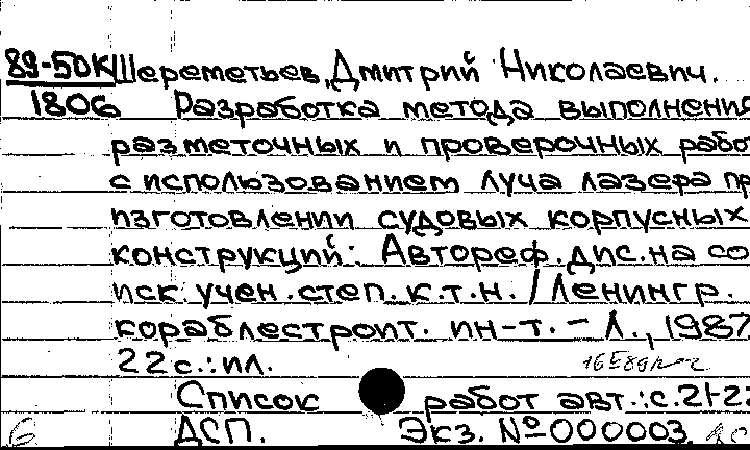 89-50К Шереметьев, Дмитрий Николаевич.
1806 Разработка метода выполнения
разметочных и проверочных рабо
с использованием луча лазера пр
изготовлении судовых корпусных
конструкций: Автореф. дис. на со
иск. учен. степ. к.т.н. / Ленингр.
кораблестроит. ин-т. – Л., 1987
22 с.: ил.
Список работ авт.: с. 21-22
6 ДСП. Экз. № 000003